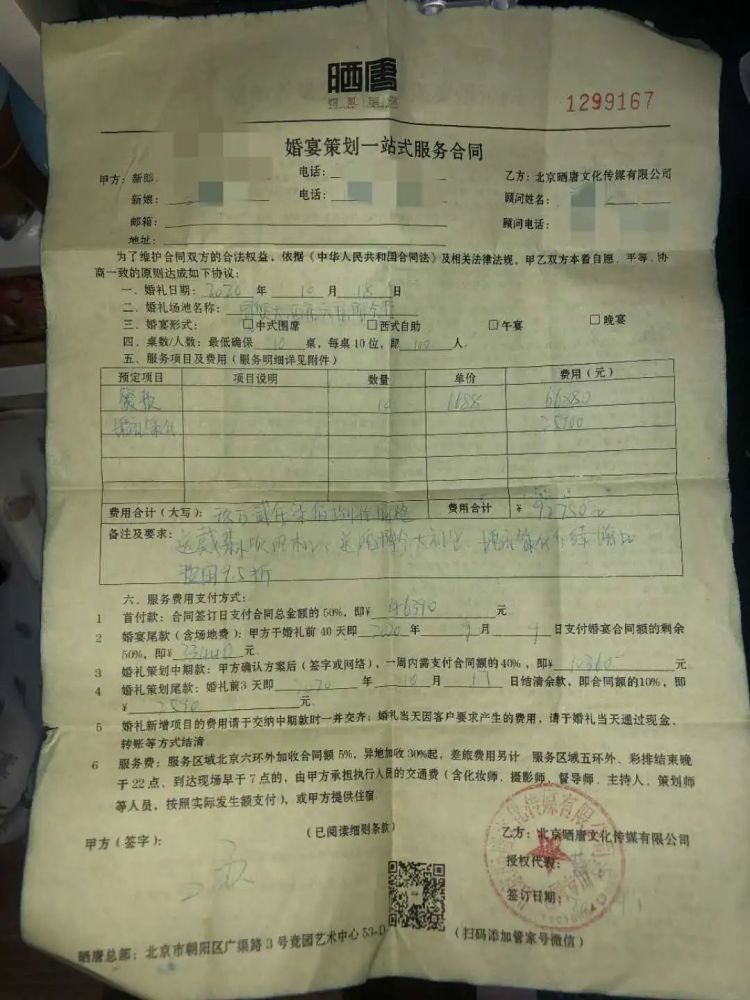 晒唐
1299167
婚宴策划一站式服务合同
甲方：新郎： 电话： 乙方：北京晒唐文化传媒有限公司
新娘： 电话： 顾问姓名：
邮箱： 顾问电话：
地址：
为了维护合同双方的合法权益，依据《中华人民共和国合同法》及相关法律法规，甲乙双方本着自愿、平等、协
商一致的原则达成如下协议：
一、婚礼日期：2020 年 10 月 18 日
二、婚礼场地名称：
三、婚宴形式： □中式围席 □西式自助 □午宴 □晚宴
四、桌数/人数：最低确保 10 桌，每桌 10 位，即 100 人.
五、服务项目及费用（服务明细详见附件）
预定项目 项目说明 数量 单价 费用（元）
餐标 1688
费用合计（大写）： 费用合计 ¥ 92780元
备注及要求：
费用9.5折
六、服务费用支付方式：
1 首付款：合同签订日支付合同总金额的 50%，即¥ 46390 元
2 婚宴尾款（含场地费）：甲方于婚礼前 40 天即 2020 年 9 月 9 日支付婚宴合同额的剩余
50%，即¥ 33440 元
3 婚礼策划中期款：甲方确认方案后（签字或网络），一周内需支付合同额的40%，即¥ 10360 元
4 婚礼策划尾款：婚礼前3 天即 2020 年 10 月 日结清余款，即合同额的10%，即
¥ 2590 元
5 婚礼新增项目的费用请于交纳中期款时一并交齐；婚礼当天因客户要求产生的费用，请于婚礼当天通过现金、
转账等方式结清
6 服务费：服务区域北京六环外加收合同额 5%，异地加收 30%起，差旅费用另计 服务区域五环外、彩排结束晚
于 22 点、到达现场早于 7 点的，由甲方承担执行人员的交通费（含化妆师、摄影师、督导师、主持人、策划师
等人员，按照实际发生额支付），或甲方提供住宿
（已阅读细则条款）
甲方（签字）： 乙方：北京晒唐文化传媒有限公司
授权代表：
签订日期：
晒唐总部：北京市朝阳区广渠路 3 号竞园艺术中心 53-D （扫码添加管家号微信）